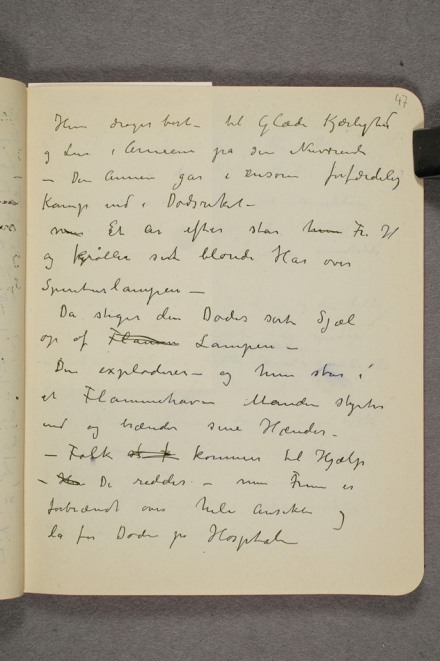 47
Hun drager bort – til Glæde Kærlighed
og Lys i Armene på den
– Den Anden gar i ensom forfærdelig
Kamp ind i Dødsriket –
Et ar efter star hun Fr. H
og krøller sit blonde Har over
Spirituslampen –
Da stiger den Dødes sorte Sjæl
op af Flammen Lampen –
Den exploderer – og hun star i
et Flammehav Manden styrter
ind og brænder sine Hænder –
– Folk kommer til Hjælp
– De reddes – men Fruen er
forbrændt over hele Ansiktet og
la for Døden på Hospitalet